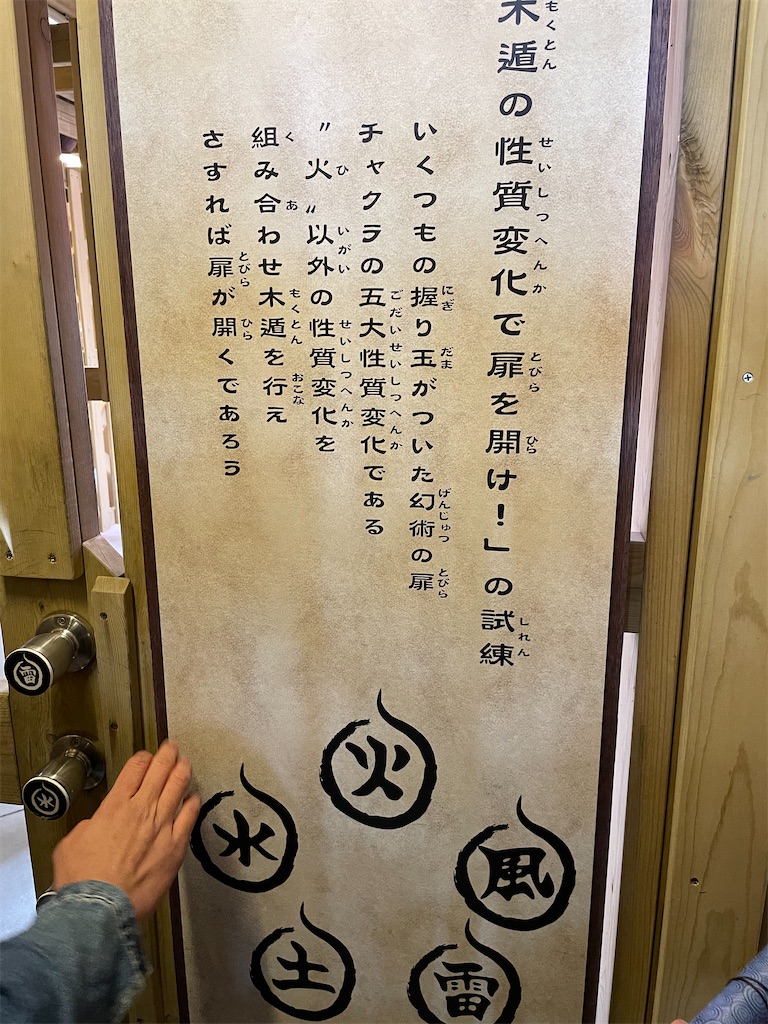 木遁の性質変化で扉を開け!」の試練
いくつもの握り玉がついた幻術の扉
チャクラの五大性質変化である
〝火〟以外の性質変化を
組み合わせ木遁を行え
さすれば扉が開くであろう
火
水
風
土
雷
雷
水